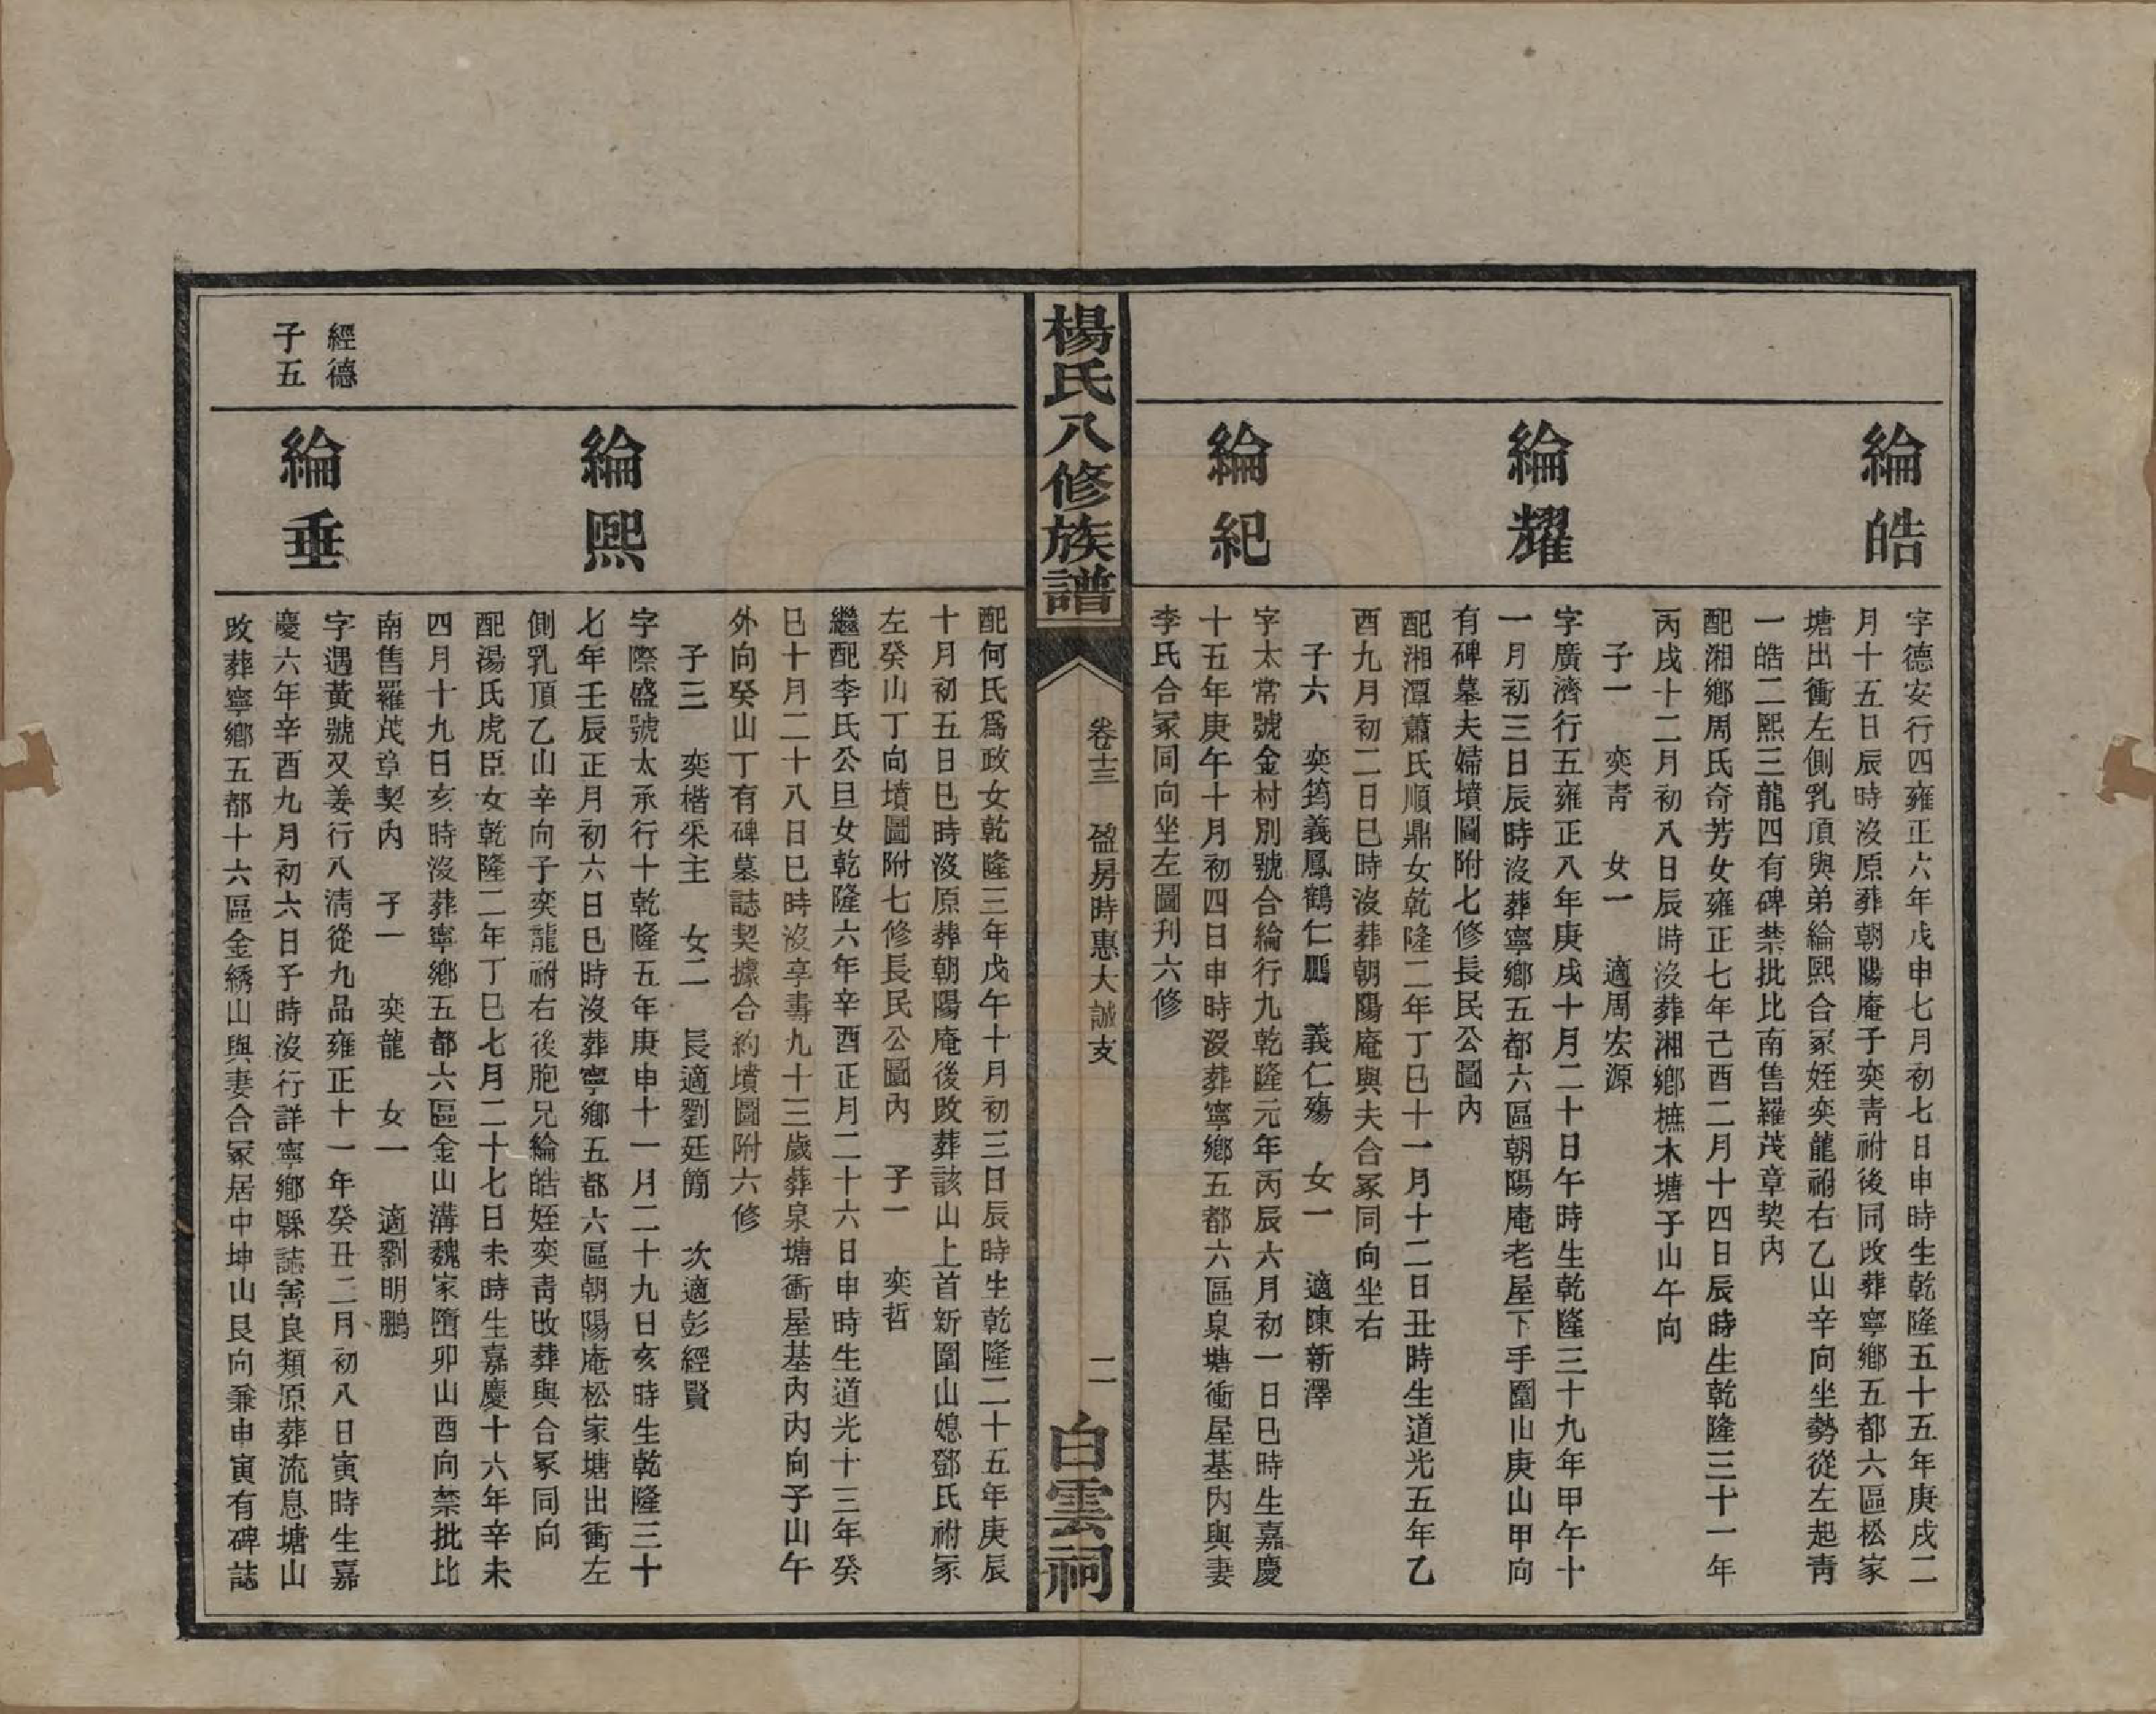 綸皓
字德安行四雍正六年戊申七月初七日申時生乾隆五十五年庚戌二
月十五日辰時沒原葬朝陽庵子奕青祔後同改葬寧鄉五都六區松家
塘出衝左側乳頂與弟綸熙合冢姪奕龍祔右乙山辛向坐勢從左起青
一皓二熙三龍四有碑禁批比南售羅茂章契內
配湘鄉周氏奇芳女雍正七年己酉二月十四日辰時生乾隆三十一年
丙戌十二月初八日辰時沒葬湘鄉樵木塘子山午向
子一　奕青　女一　適周宏源
綸耀
字廣濟行五雍正八年庚戌十月二十日午時生乾隆三十九年甲午十
一月初三日辰時沒葬寧鄉五都六區朝陽庵老屋下手圍山庚山甲向
有碑墓夫婦墳圖附七修長民公圖內
配湘潭蕭氏順鼎女乾隆二年丁巳十一月十二日丑時生道光五年乙
酉九月初二日巳時沒葬朝陽庵與夫合冢同向坐右
子六　奕筠義鳳鶴仁鵬　義仁殤　女一　適陳新澤
綸紀
字太常號金村別號合綸行九乾隆元年丙辰六月初一日巳時生嘉慶
十五年庚午十月初四日申時沒葬寧鄉五都六區泉塘衝屋基內與妻
李氏合冢同向坐左圖刋六修
楊氏八修族譜
卷十三　盈房時惠大誠支
二
白雲祠
配何氏爲政女乾隆三年戊午十月初三日辰時生乾隆二十五年庚辰
十月初五日巳時沒原葬朝陽庵後改葬該山上首新圍山媳鄧氏祔冢
左癸山丁向墳圖附七修長民公圖內　子一　奕哲
繼配李氏公旦女乾隆六年辛酉正月二十六日申時生道光十三年癸
巳十月二十八日巳時沒享壽九十三歲葬泉塘衝屋基內內向子山午
外向癸山丁有碑墓誌契據合約墳圖附六修
子三　奕楷采主　女二　長適劉廷簡　次適彭經賢
綸熙
字際盛號太承行十乾隆五年庚申十一月二十九日亥時生乾隆三十
七年壬辰正月初六日巳時沒葬寧鄉五都六區朝陽庵松家塘出衝左
側乳頂乙山辛向子奕龍祔右後胞兄綸皓姪奕青改葬與合冢同向
配湯氏虎臣女乾隆二年丁巳七月二十七日未時生嘉慶十六年辛未
四月十九日亥時沒葬寧鄉五都六區金山溝魏家墮卯山酉向禁批比
南售羅茂章契內　子一　奕龍　女一　適劉明鵬
經德
子五
綸垂
字遇黃號又姜行八清從九品雍正十一年癸丑二月初八日寅時生嘉
慶六年辛酉九月初六日子時沒行詳寧鄉縣誌善良類原葬流息塘山
改葬寧鄉五都十六區金綉山與妻合冢居中坤山艮向兼申寅有碑誌